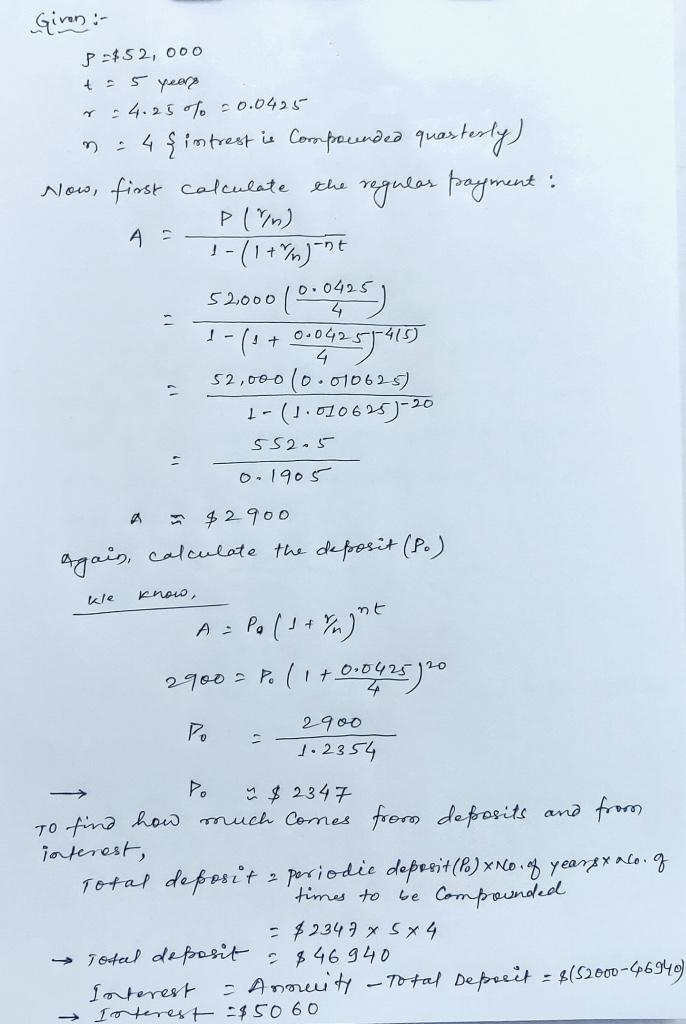 Given :-
P = $52,000
t = 5 years
r = 4.25 % = 0.0425
n = 4 { intrest is Compounded quarterly)
Now, first calculate the regular payment :
A = P (r/n) / 1-(1+r/n)^-nt
= 52,000 (0.0425/4) / 1-(1+0.0425/4)^-4(5)
= 52,000 (0.010625) / 1-(1.010625)^-20
= 552.5 / 0.1905
A ≈ $2900
Again, calculate the deposit (P₀)
We know,
A = P₀ (1+r/n)^nt
2900 = P₀ (1+0.0425/4)^20
P₀ = 2900 / 1.2354
→ P₀ ≈ $2347
To find how much comes from deposits and from
interest,
Total deposit = periodic deposit(P₀) x No. of years x No. of
times to be compounded
= $2347 x 5 x 4
→ Total deposit = $46940
Interest = Annuity - Total Deposit = $(52000-46940)
→ Interest = $5060